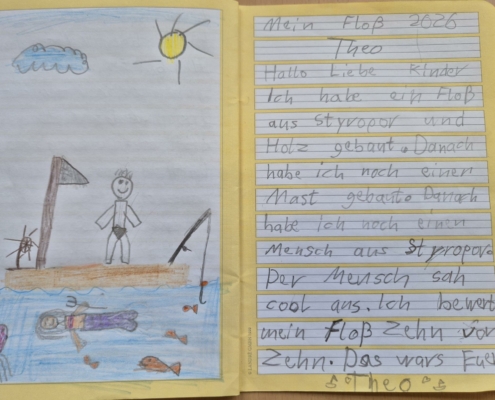 Mein Floß 2026
Theo
Hallo Liebe Kinder
Ich habe ein Floß
aus Styropor und
Holz gebaut. Danach
habe ich noch einen
Mast gebaut. Danach
habe ich noch einen
Mensch aus Styropor.
Der Mensch sah
cool aus. Ich bewert
mein Floß Zehn von
Zehn. Das wars Euer
Theo